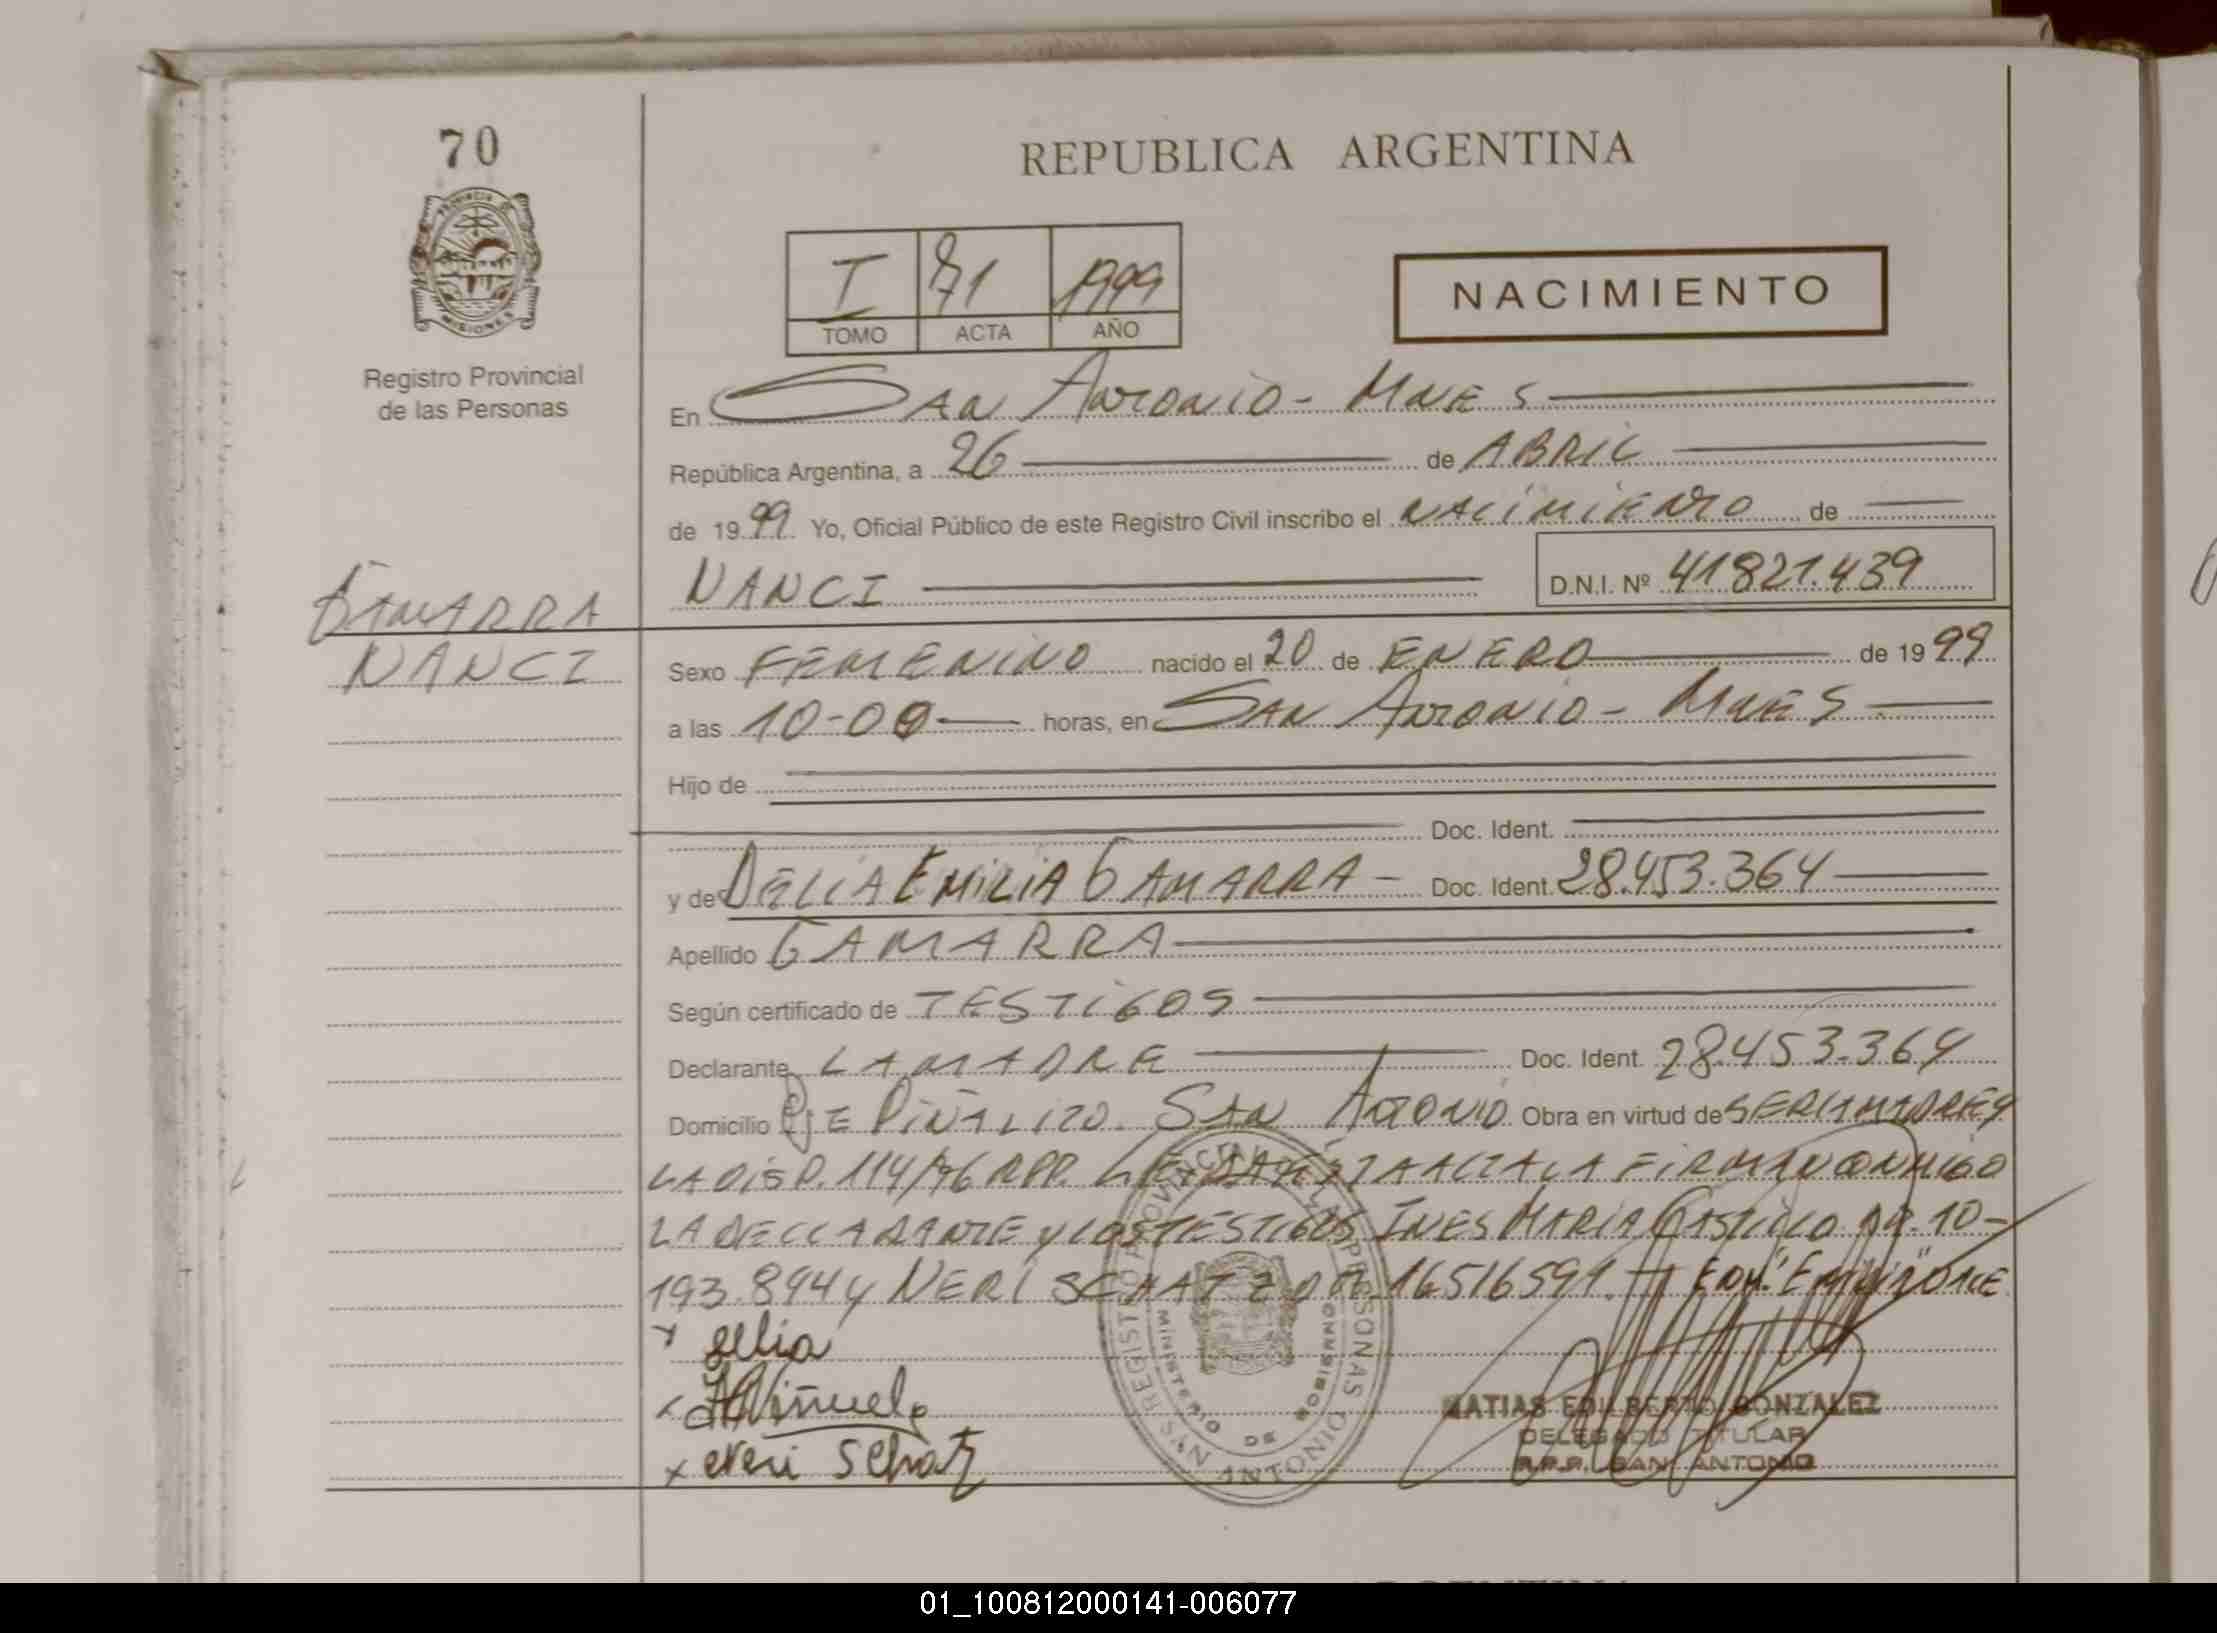 70
REPUBLICA ARGENTINA
PROVINCIA DE
MISIONES
Registro Provincial
de las Personas
I 71 1999
TOMO ACTA AÑO
NACIMIENTO
En SAN ANTONIO - MNES
República Argentina, a 26 de ABRIL
de 1999 Yo, Oficial Público de este Registro Civil inscribo el NACIMIENTO de
NANCI D.N.I. Nº 41821.439
GAMARRA
NANCI
Sexo FEMENINO nacido el 20 de ENERO de 1999
a las 10-00 horas, en SAN ANTONIO - MNES
Hijo de
Doc. Ident.
y de DELIA EMILIA GAMARRA - Doc. Ident. 28.453.364
Apellido GAMARRA
Según certificado de TESTIGOS
Declarante LA MADRE Doc. Ident. 28.453.364
Domicilio PJE PIÑALITO. SAN ANTONIO Obra en virtud de SER LA MADRE Y
LA DISP. 114/96 RPP. LEIDA EL ACTA LA FIRMAN CONMIGO
LA DECLARANTE Y LOS TESTIGOS INES MARIA CASTILLO 10-
193.894 Y NERI SCHATZ 16516591. "EMILIA" VALE
x Delia
x Viñuela
x Neri Schatz
REGISTRO PROVINCIAL DE LAS PERSONAS
MINISTERIO DE GOBIERNO
SAN ANTONIO
MATIAS EDILBERTO GONZALEZ
DELEGADO TITULAR
R.P.P. SAN ANTONIO
01_100812000141-006077